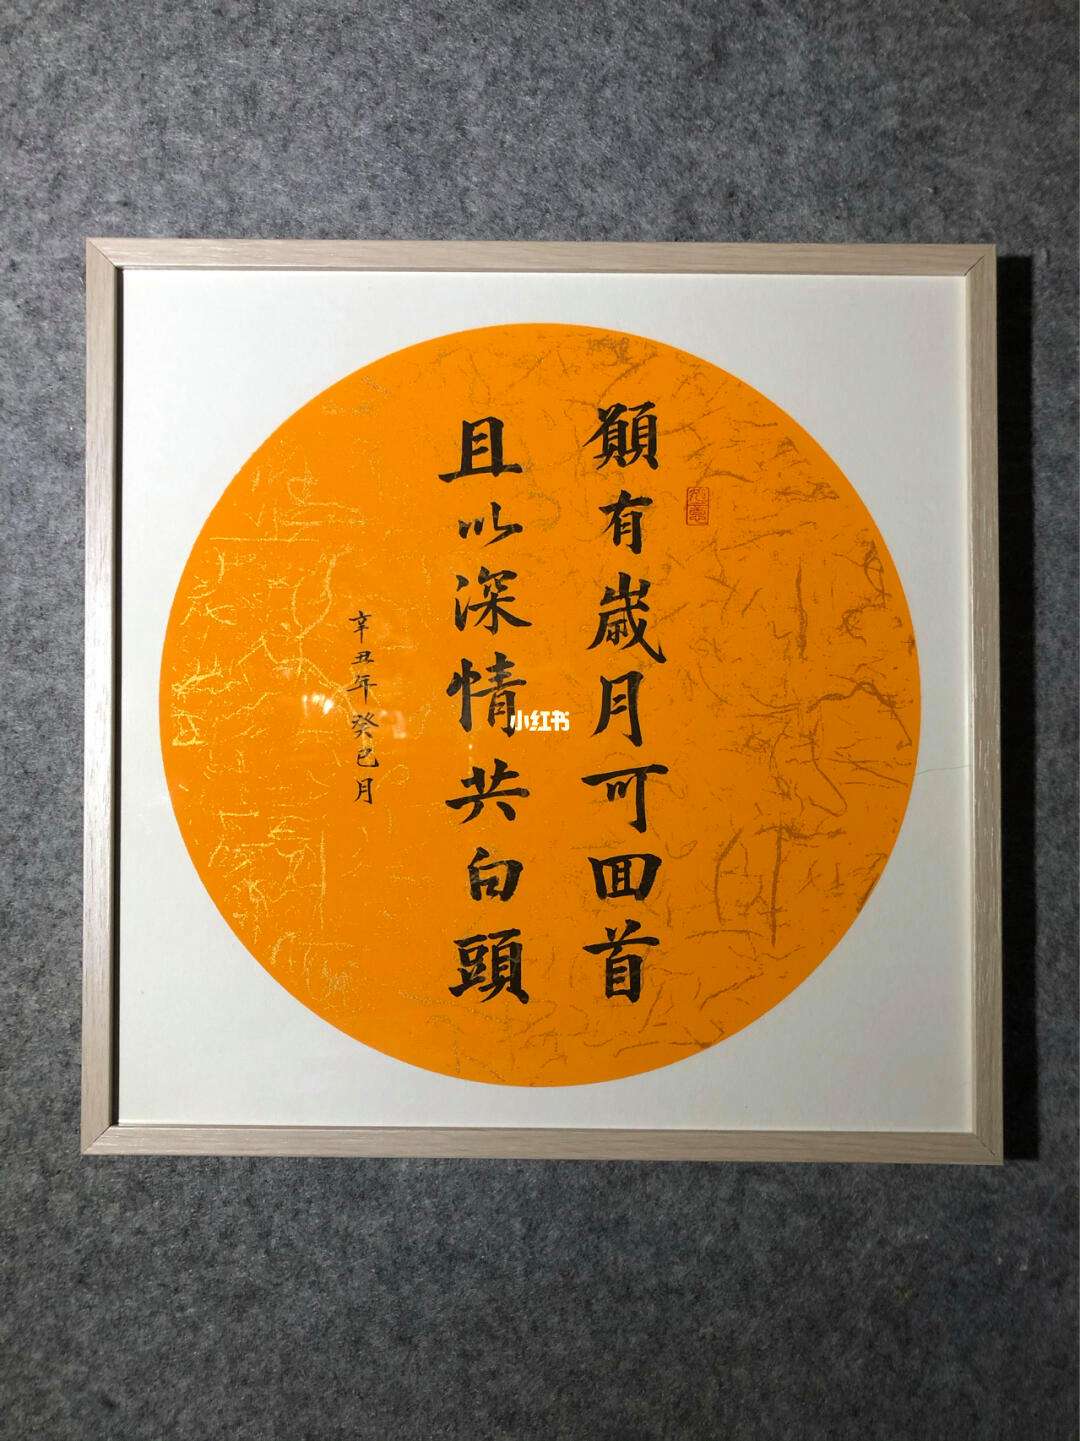 願有歲月可回首
且以深情共白頭
辛丑年癸巳月
小红书